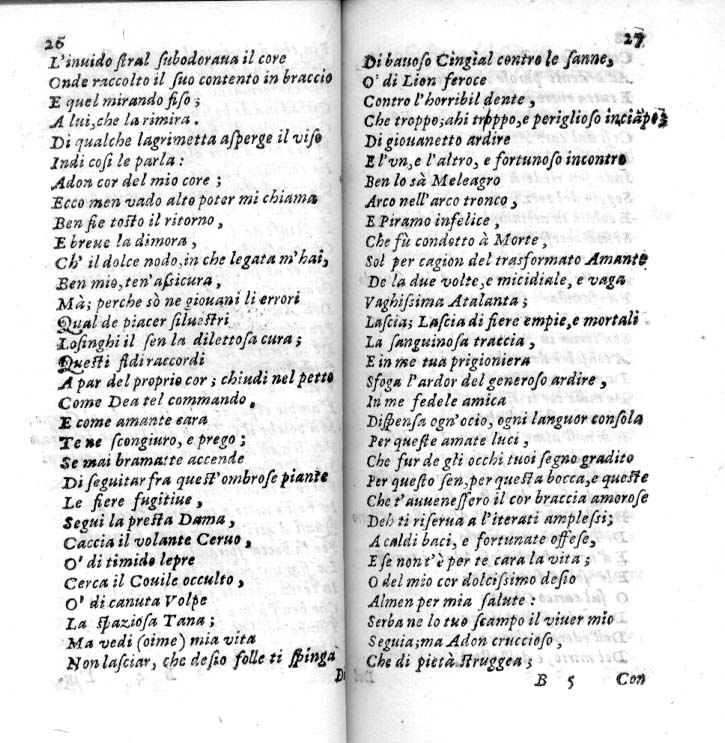 26
L'inuido stral subodoraua il core
Onde raccolto il suo contento in braccio
E quel mirando fiso;
A lui, che la rimira.
Di qualche lagrimetta asperge il viso
Indi così le parla:
Adon cor del mio core;
Ecco men vado alto poter mi chiama
Ben fie tosto il ritorno,
E breue la dimora,
Ch' il dolce nodo, in che legata m'hai,
Ben mio, ten' assicura,
Mà; perche sò ne giouani li errori
Qual de piacer siluestri
Losinghi il sen la dilettosa cura;
Questi fidi raccordi
A par del proprio cor; chiudi nel petto
Come Dea tel commando,
E come amante cara
Te ne scongiuro, e prego;
Se mai bramatte accende
Di seguitar fra quest'ombrose piante
Le fiere fugitiue,
Segui la presta Dama,
Caccia il volante Ceruo,
O' di timido lepre
Cerca il Couile occulto,
O' di canuta Volpe
La spaziosa Tana;
Ma vedi (oime) mia vita
Non lasciar, che desio folle ti spinga
27
Di bauoso Cingial contro le sanne,
O' di Lion feroce
Contro l'horribil dente,
Che troppo; ahi troppo, e periglioso inciapo;
Di giouanetto ardire
E l'vn, e l'altro, e fortunoso incontro
Ben lo sà Meleagro
Arco nell'arco tronco,
E Piramo infelice,
Che fù condotto à Morte,
Sol per cagion del trasformato Amante
De la due volte, e micidiale, e vaga
Vaghissima Atalanta;
Lascia; Lascia di fiere empie, e mortali
La sanguinosa traccia,
E in me tua prigioniera
Sfoga l'ardor del generoso ardire,
In me fedele amica
Dispensa ogn'ocio, ogni languor consola
Per queste amate luci,
Che fur de gli occhi tuoi segno gradito
Per questo sen, per questa bocca, e queste
Che t'auuenessero il cor braccia amorose
Deh ti riserua a l'iterati amplessi;
A caldi baci, e fortunate offese,
E se non t'è per te cara la vita;
O del mio cor dolcissimo desio
Almen per mia salute:
Serba ne lo tuo scampo il viuer mio
Seguia; ma Adon cruccioso,
Che di pietà struggea;
B 5 Con